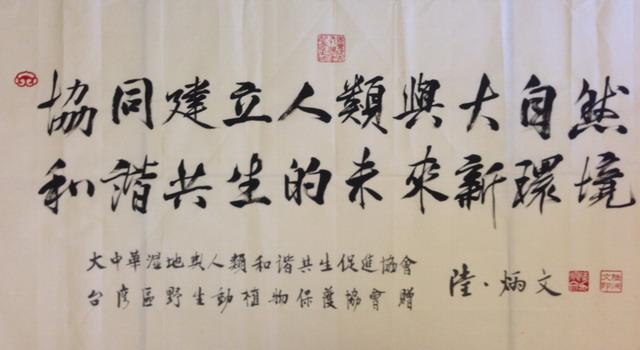 協同建立人類與大自然
和諧共生的未來新環境
大中華濕地與人類和諧共生促進協會
台灣區野生動植物保護協會 贈
陸·炳文